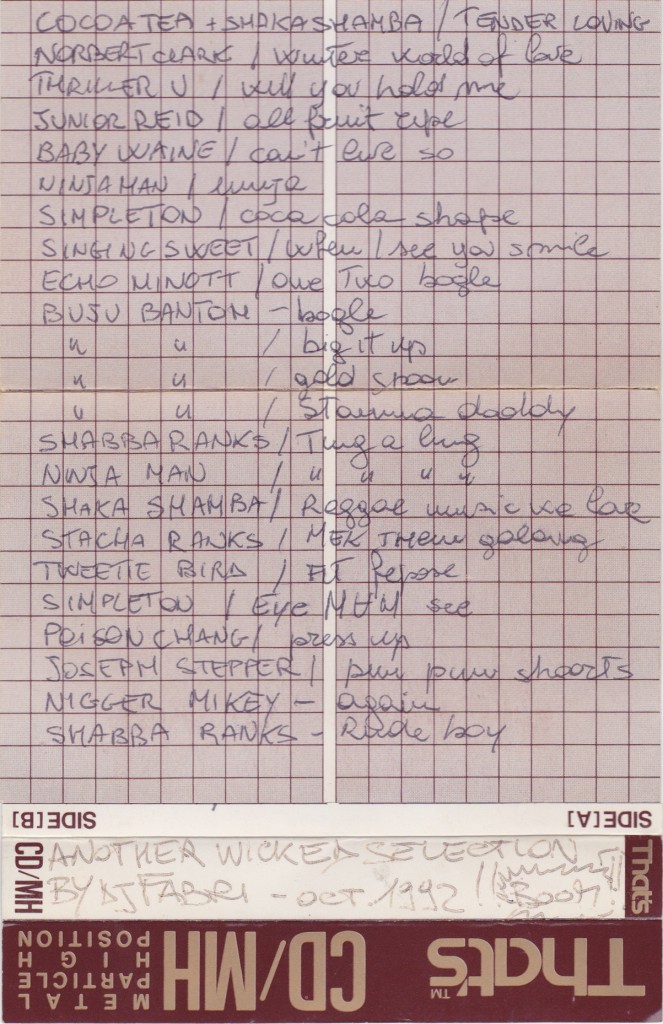 COCOA TEA + SHAKA SHAMBA / TENDER LOVING
NORBERT CLARK / winter world of love
THRILLER U / will you hold me
JUNIOR REID / all fruit ripe
BABY WAINE / can't live so
NINJA MAN / ninja
SIMPLETON / coca cola shape
SINGING SWEET / When I see you smile
ECHO MINOTT / One Two bogle
BUJU BANTON - bogle
" " / big it up
" " / gold spoon
" " / Stamina daddy
SHABBA RANKS / Ting a ling
NINJA MAN / " " " "
SHAKA SHAMBA / Reggae music we love
STACHA RANKS / MEK THEM galang
TWEETIE BIRD / FIT
SIMPLETON / Eye MAN see
POISON CHANG / press up
JOSEPH STEPPER / pum pum shoorts
NIGGER MIKEY - again
SHABBA RANKS - Rude boy
SIDE[B] SIDE[A]
CD/MH
ANOTHER WICKED SELECTION
BY DJ FABRI - OCT. 1992 !! BOOM!
That's
METAL PARTICLE HIGH POSITION
CD/MH
That's™